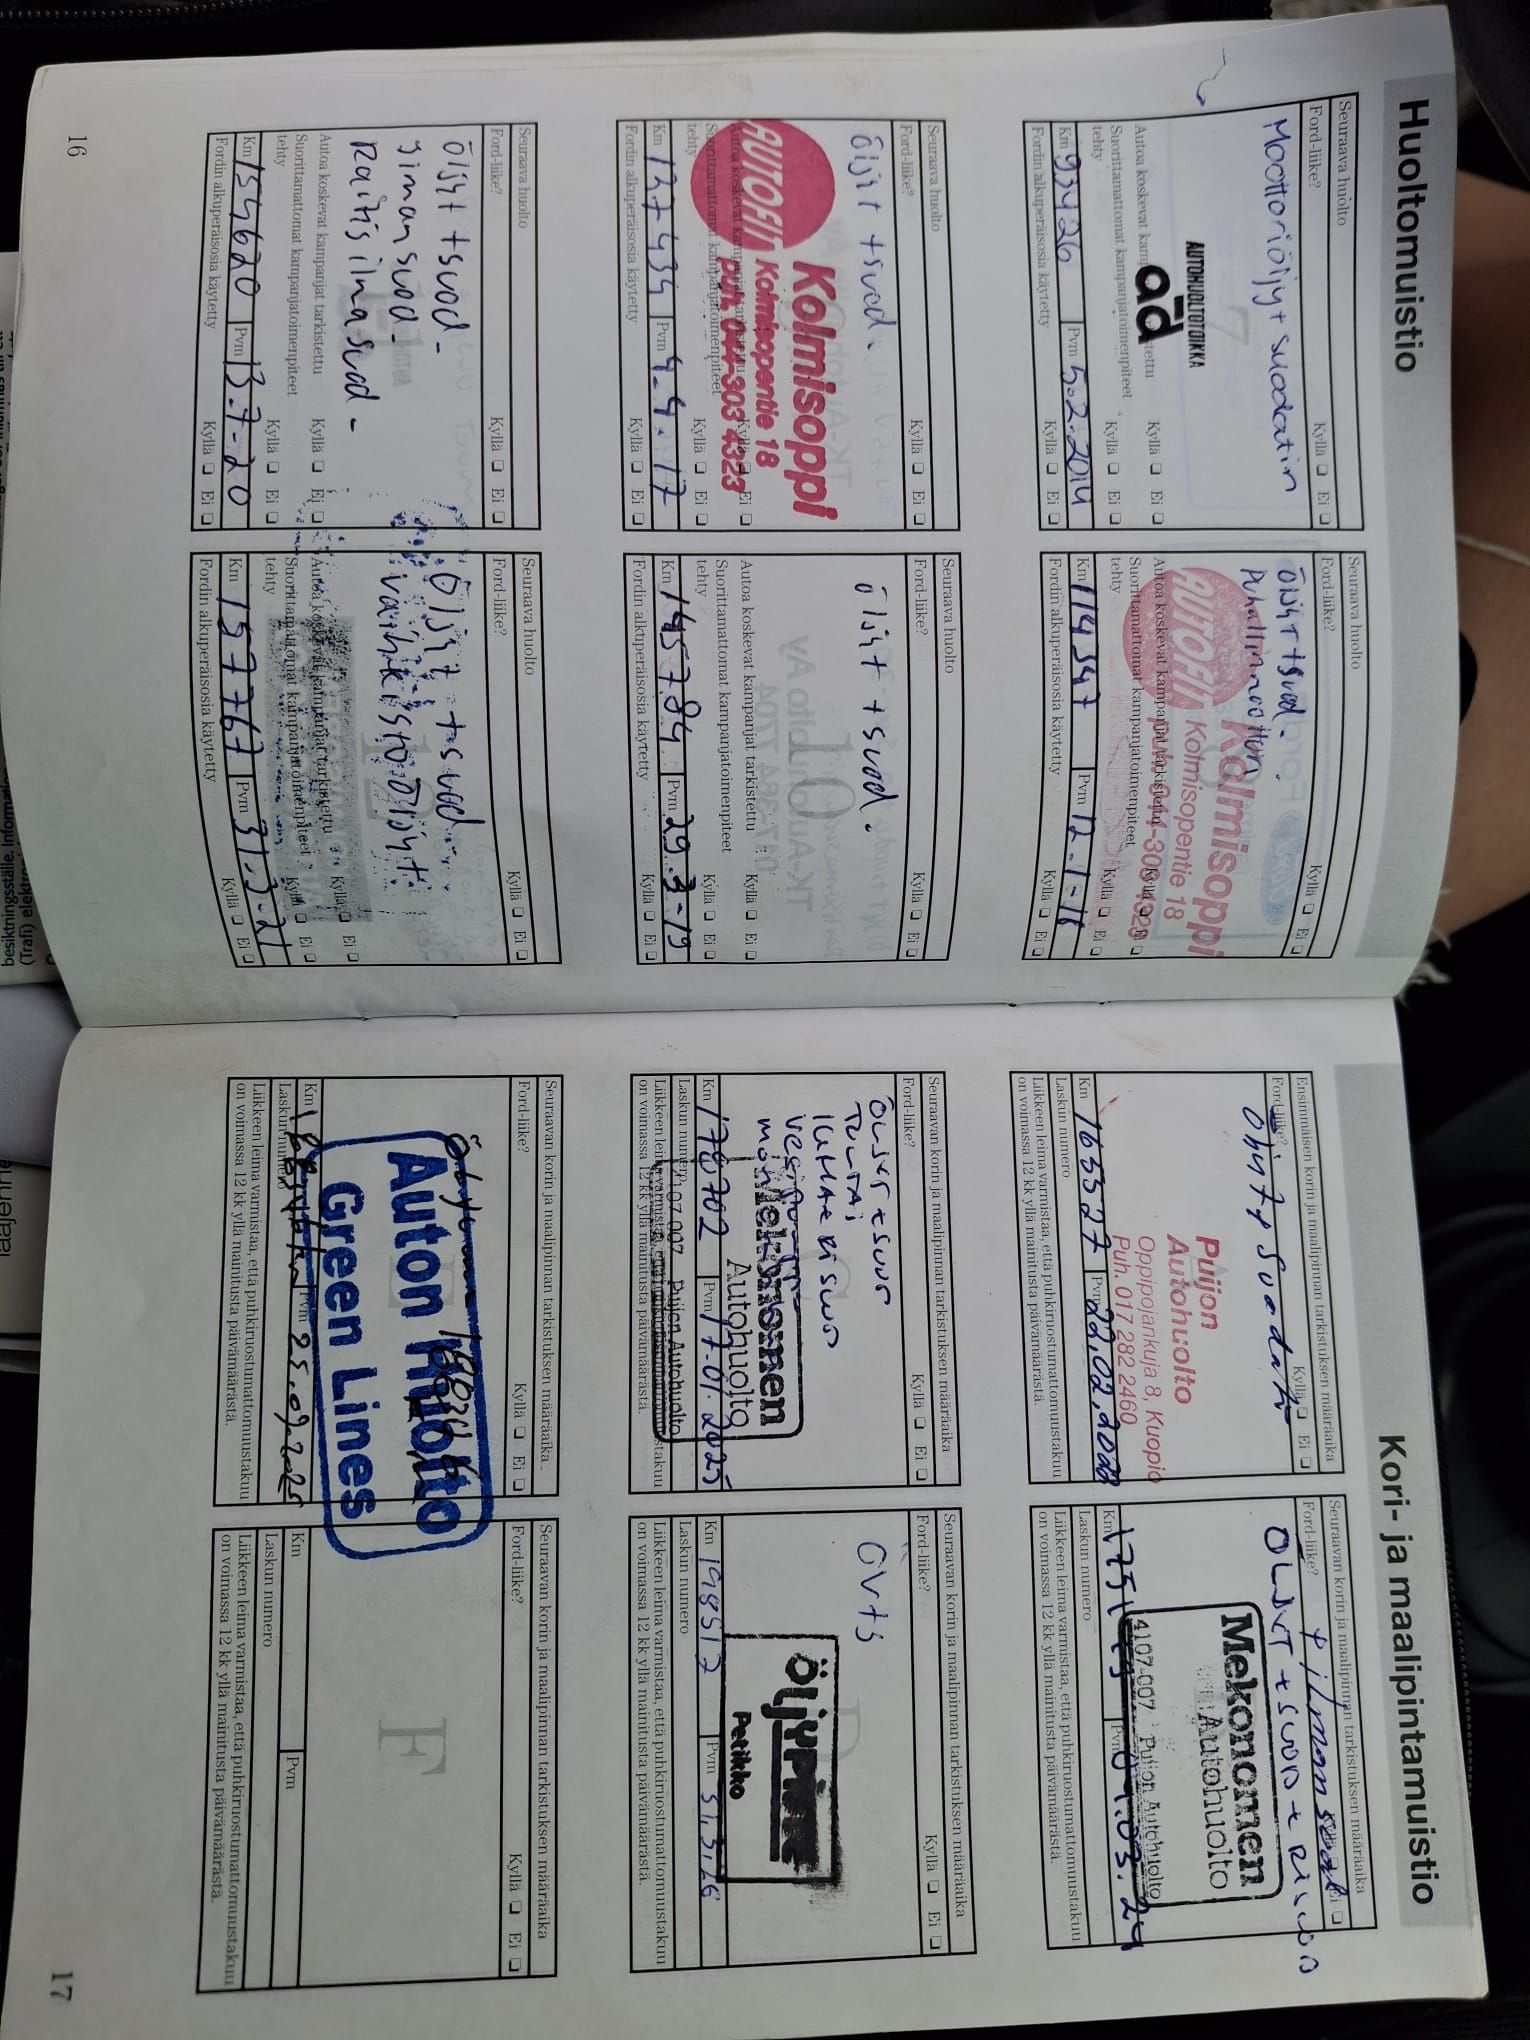 Huoltomuistio
Seuraava huolto
Ford-liike? Kyllä ❑ Ei ❑
Moottoriöljy+ suodatin
AUTOHUOLTOTOIKKA
ad
Autoa koskevat kam tettu Kyllä ❑ Ei ❑
Suorittamattomat kampanjatoimenpiteet
tehty Kyllä ❑ Ei ❑
Km 93426 Pvm 5.2.2014
Fordin alkuperäisosia käytetty Kyllä ❑ Ei ❑
Seuraava huolto
Ford-liike? Kyllä ❑ Ei ❑
Öljyt+suod.
Puhallinmoottori
Kolmisoppi
AUTOFIT Kolmisopentie 18
Puh. 044-303 4323
Autoa koskevat kampanjat tarkistettu Kyllä ❑ Ei ❑
Suorittamattomat kampanjatoimenpiteet
tehty Kyllä ❑ Ei ❑
Km 114347 Pvm 12.1-16
Fordin alkuperäisosia käytetty Kyllä ❑ Ei ❑
Seuraava huolto
Ford-liike? Kyllä ❑ Ei ❑
Öljyt +suod.
Kolmisoppi
AUTOFIT Kolmisopentie 18
Puh. 044-303 4323
Autoa koskevat kampanjat tarkistettu Kyllä ❑ Ei ❑
Suorittamattomat kampanjatoimenpiteet
tehty Kyllä ❑ Ei ❑
Km 127434 Pvm 4.4.17
Fordin alkuperäisosia käytetty Kyllä ❑ Ei ❑
Seuraava huolto
Ford-liike? Kyllä ❑ Ei ❑
Öljyt +suod.
Autoa koskevat kampanjat tarkistettu Kyllä ❑ Ei ❑
Suorittamattomat kampanjatoimenpiteet
tehty Kyllä ❑ Ei ❑
Km 145784 Pvm 29.3-19
Fordin alkuperäisosia käytetty Kyllä ❑ Ei ❑
Seuraava huolto
Ford-liike? Kyllä ❑ Ei ❑
Öljyt +suod-
ilman suod-
Raitis ilma suod-
Autoa koskevat kampanjat tarkistettu Kyllä ❑ Ei ❑
Suorittamattomat kampanjatoimenpiteet
tehty Kyllä ❑ Ei ❑
Km 154620 Pvm 13.7-20
Fordin alkuperäisosia käytetty Kyllä ❑ Ei ❑
Seuraava huolto
Ford-liike? Kyllä ❑ Ei ❑
Öljyt +suod.
vaihteistoöljyt
Autoa koskevat kampanjat tarkistettu Kyllä ❑ Ei ❑
Suorittamattomat kampanjatoimenpiteet
tehty Kyllä ❑ Ei ❑
Km 157767 Pvm 31.3-21
Fordin alkuperäisosia käytetty Kyllä ❑ Ei ❑
16
Kori- ja maalipintamuistio
Ensimmäisen korin ja maalipinnan tarkistuksen määräaika
Ford-liike? Kyllä ❑ Ei ❑
Öljyt, Suodatin
Puijon
Autohuolto
Oppipojankuja 8, Kuopio
Puh. 017 282 2460
Km 165327 Pvm 22.02.2022
Laskun numero
Liikkeen leima varmistaa, että puhkiruostumattomuustakuu
on voimassa 12 kk yllä mainitusta päivämäärästä.
Seuraavan korin ja maalipinnan tarkistuksen määräaika
Ford-liike? Ei ❑
+ ilmansuod
ÖLJYT + SUOD + RISUOD
Mekonomen
Autohuolto
4107-007 Puijon Autohuolto
Km Pvm 03.24
Laskun numero
Liikkeen leima varmistaa, että puhkiruostumattomuustakuu
on voimassa 12 kk yllä mainitusta päivämäärästä.
Seuraavan korin ja maalipinnan tarkistuksen määräaika
Ford-liike? Kyllä ❑ Ei ❑
ÖLJYT + SUOD
ILMA+RISUOD
Mekonomen
Autohuolto
4107-007 Puijon Autohuolto
Km 178702 Pvm 17.01.2025
Laskun numero
Liikkeen leima varmistaa, että puhkiruostumattomuustakuu
on voimassa 12 kk yllä mainitusta päivämäärästä.
Seuraavan korin ja maalipinnan tarkistuksen määräaika
Ford-liike? Kyllä ❑ Ei ❑
ÖljyPiste
Petikko
Km 198517 Pvm 31.3.26
Laskun numero
Liikkeen leima varmistaa, että puhkiruostumattomuustakuu
on voimassa 12 kk yllä mainitusta päivämäärästä.
Seuraavan korin ja maalipinnan tarkistuksen määräaika
Ford-liike? Kyllä ❑ Ei ❑
Auton Huolto
Green Lines
Km Pvm 25.09.2025
Laskun numero
Liikkeen leima varmistaa, että puhkiruostumattomuustakuu
on voimassa 12 kk yllä mainitusta päivämäärästä.
Seuraavan korin ja maalipinnan tarkistuksen määräaika
Ford-liike? Kyllä ❑ Ei ❑
F
Km Pvm
Laskun numero
Liikkeen leima varmistaa, että puhkiruostumattomuustakuu
on voimassa 12 kk yllä mainitusta päivämäärästä.
17